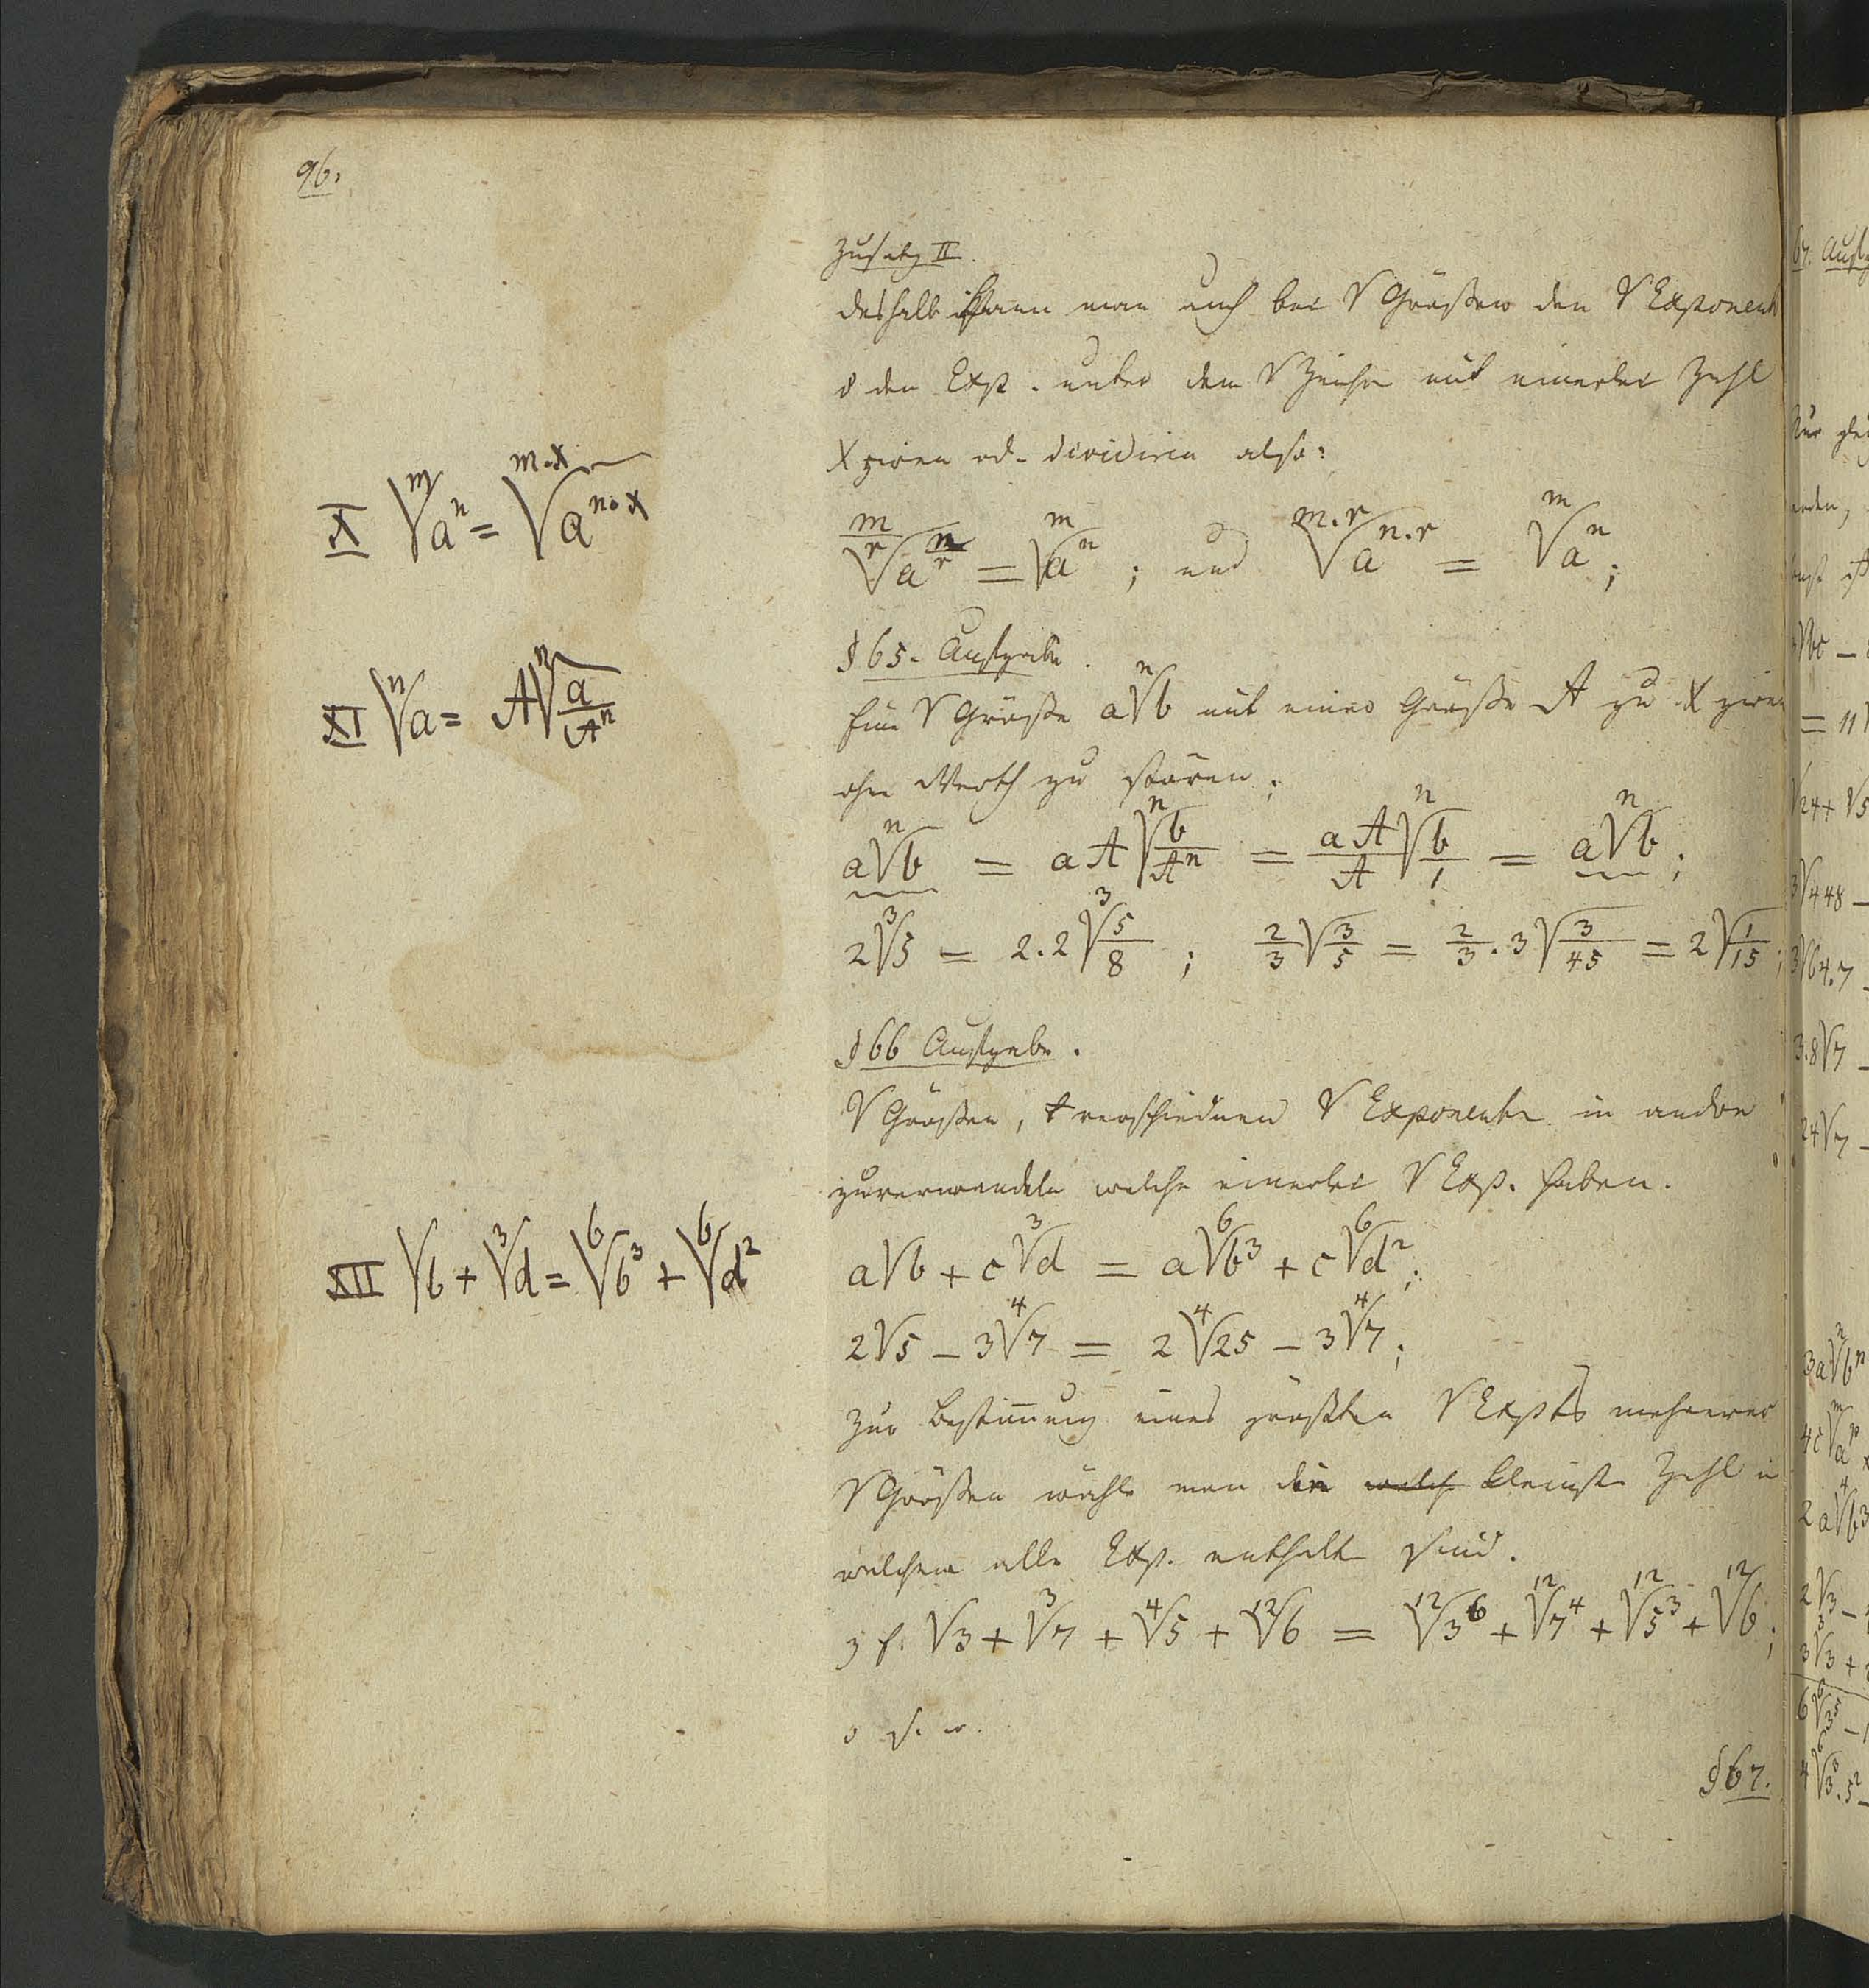 96.
Zusatz II.
deshalb kann man auch bei √ Größen den √ Exponent
& den Exp. unter dem √ Zeichen mit einerlei Zahl
X ziren od. dividiren also:
X √[m]{a^n} = √[m·x]{a^{n·x}}
√[m/r]{a^{n/r}} = √[m]{a^n}; und √[m·r]{a^{n·r}} = √[m]{a^n};
§ 65. Aufgabe.
XI √[n]{a} = A √[n]{a/A^n}
Eine √ Größe a √[n]{b} mit einer Größe A zu X ziren
ohne Werth zu stören;
a √[n]{b} = aA √[n]{b/A^n} = aA/A √[n]{b/1} = a √[n]{b};
2 √[3]{5} = 2.2 √[3]{5/8}; 2/3 √{3/5} = 2/3 . 3 √{3/45} = 2 √{1/15};
§ 66 Aufgabe.
√ Größen, + verschiednen √ Exponenten in andre
zuverwandeln welche einerlei √ Exp. haben.
XII √b + √[3]{d} = √[6]{b^3} + √[6]{d^2}
a√b + c √[3]{d} = a √[6]{b^3} + c √[6]{d^2};
2√5 − 3 √[4]{7} = 2 √[4]{25} − 3 √[4]{7};
Zur Bestim̄ung eines größten √ Expts mehrerer
√ Größen wähle man die welch kleinste Zahl in
welchem alle Exp. enthalten sind.
z. E. √3 + √[3]{7} + √[4]{5} + √[12]{6} = √[12]{3^6} + √[12]{7^4} + √[12]{5^3} + √[12]{6};
§ 67.